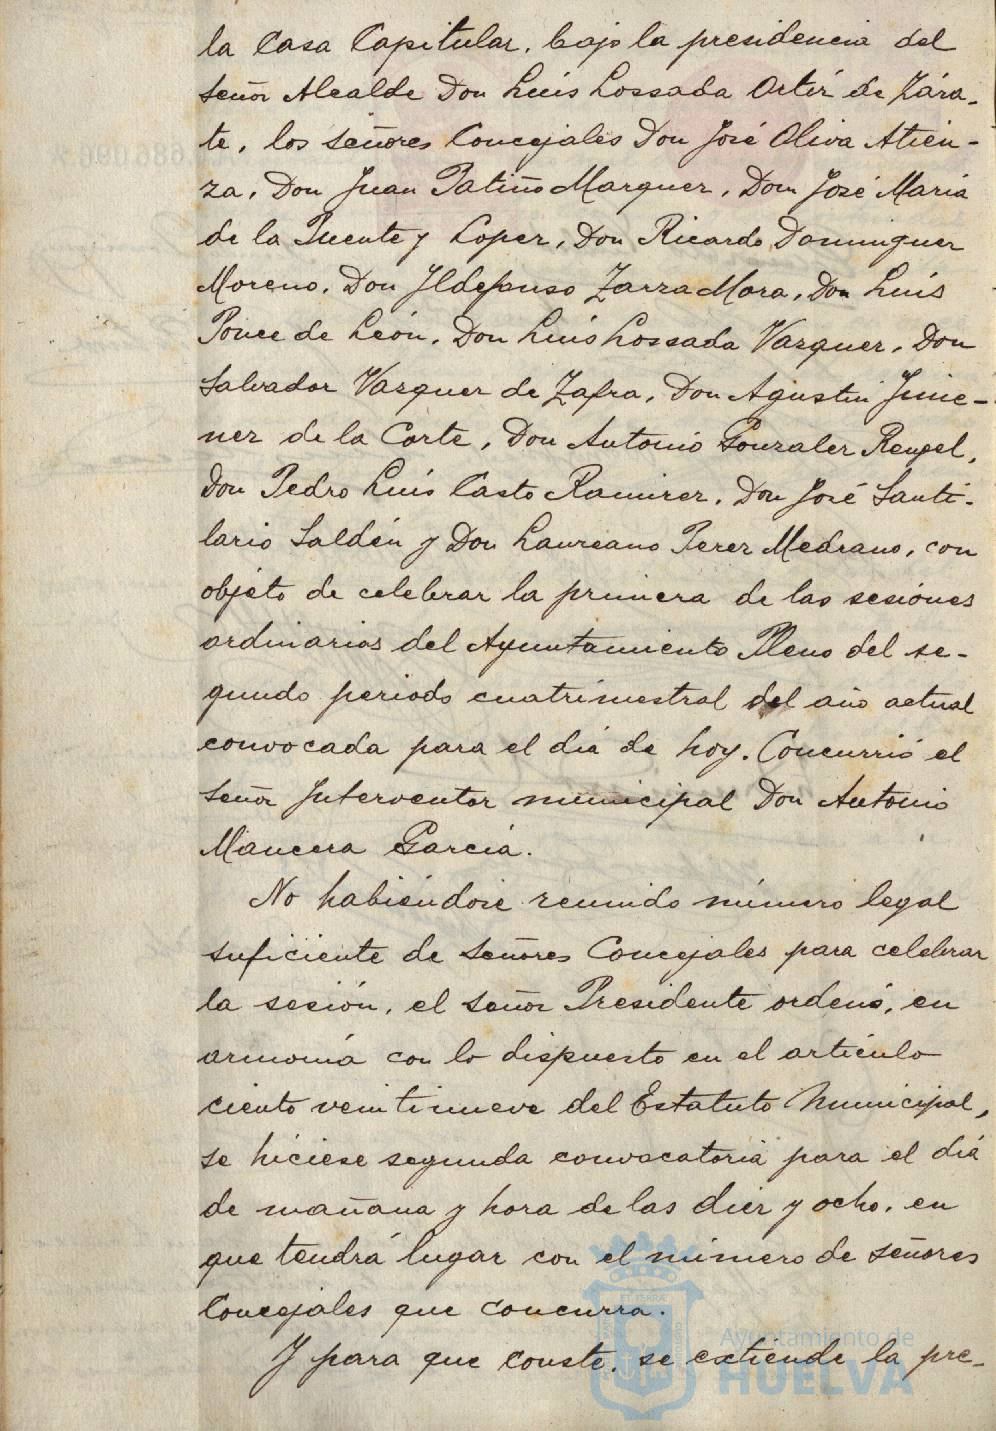 la Casa Capitular, bajo la presidencia del
señor Alcalde Don Luís Lossada Ortíz de Zára-
te, los señores Concejales Don José Oliva Atien-
za, Don Juan Patiño Marquez, Don José María
de la Puente y Lopez, Don Ricardo Dominguez
Moreno, Don Ildefonso Zarza Mora, Don Luís
Ponce de León, Don Luís Lossada Vazquez, Don
Salvador Vazquez de Zafra, Don Agustín Jime-
nez de la Corte, Don Antonio Gonzalez Rengel,
Don Pedro Luís Casto Ramirez, Don José Santi-
lario Saldén y Don Laureano Perez Medrano, con
objeto de celebrar la primera de las sesiones
ordinarias del Ayuntamiento Pleno del se-
gundo periodo cuatrimestral del año actual
convocada para el día de hoy. Concurrió el
señor Interventor municipal Don Antonio
Mancera García.
No habiéndose reunido número legal
suficiente de señores Concejales para celebrar
la sesión, el señor Presidente ordenó, en
armonía con lo dispuesto en el artículo
ciento veintinueve del Estatuto Municipal,
se hiciese segunda convocatoria para el día
de mañana y hora de las diez y ocho, en
que tendrá lugar con el número de señores
Concejales que concurra.
Y para que conste, se extiende la pre-
Ayuntamiento de
HUELVA